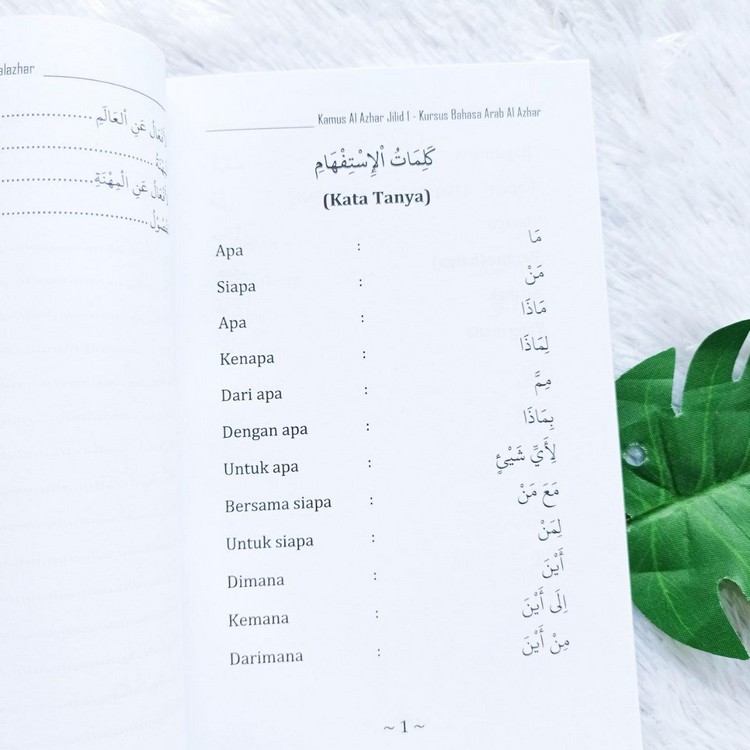 alazhar
أفعال عن العالم
أفعال عن المهنة
Kamus Al Azhar Jilid 1 - Kursus Bahasa Arab Al Azhar
كَلِمَاتُ اْلإِسْتِفْهَامِ
(Kata Tanya)
Apa : مَا
Siapa : مَنْ
Apa : مَاذَا
Kenapa : لِمَاذَا
Dari apa : مِمَّ
Dengan apa : بِمَاذَا
Untuk apa : لِأَيِّ شَيْئٍ
Bersama siapa : مَعَ مَنْ
Untuk siapa : لِمَنْ
Dimana : أَيْنَ
Kemana : اِلَى أَيْنَ
Darimana : مِنْ أَيْنَ
~ 1 ~